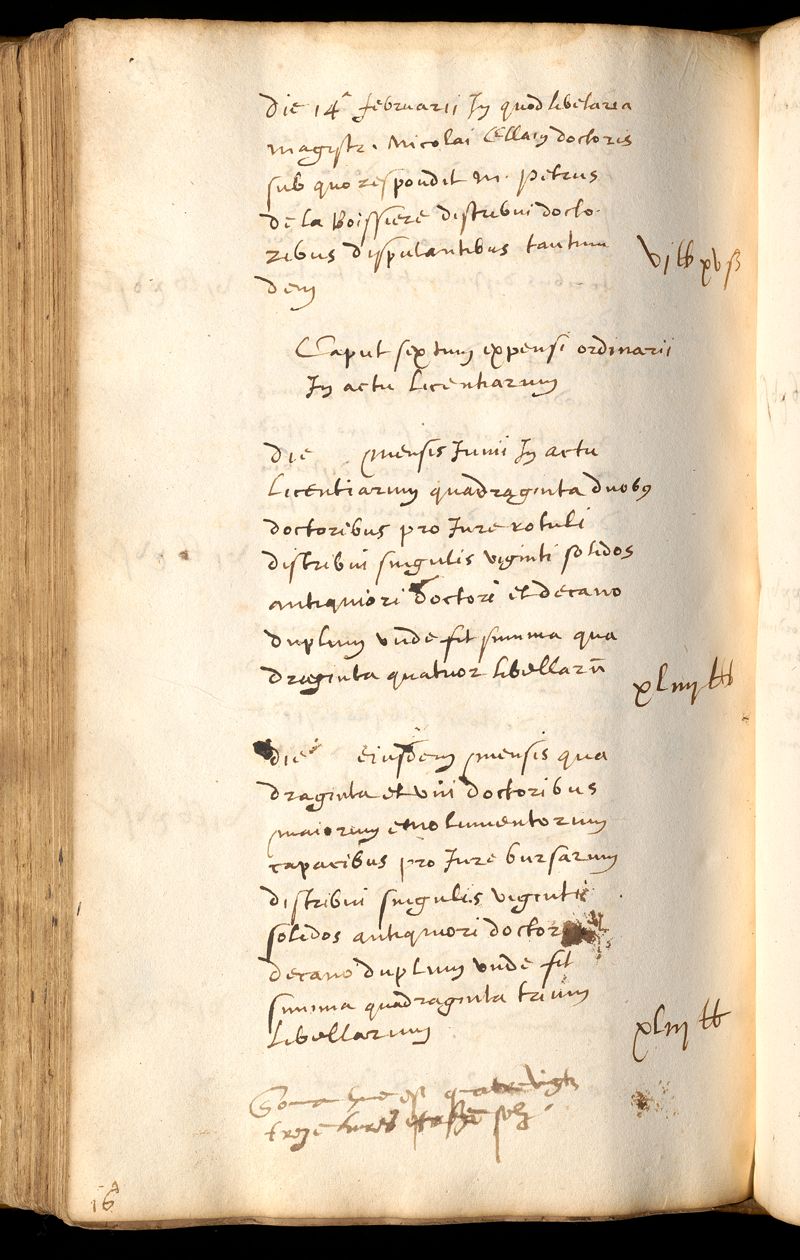 die 14ᵃ februarii In quodlibetaria
magistr. Nicolai Ellain doctoris
sub quo respondit m. Petrus
de la Boissiere distribui docto
ribus disputantibus tantum
dem
vi ℔ xv ß
Caput sextum expensi ordinarii
In actu licentiarum
die mensis Junii In actu
licentiarum quadraginta duobꝰ
doctoribus pro Jure rotuli
distribui singulis viginti solidos
antiquiori doctori et decano
duplum unde fit summa qua
draginta quatuor libellarū
xliiij ℔
die eiusdem mensis qua
draginta et uni doctoribus
maiorum emolumentorum
capacibus pro Jure bursarum
distribui singulis vigenti
solidos antiquiori doctori
decano duplum unde fit
summa quadraginta trium
libellarum
xliij ℔
est quatre vigtz
treze livres solz
16